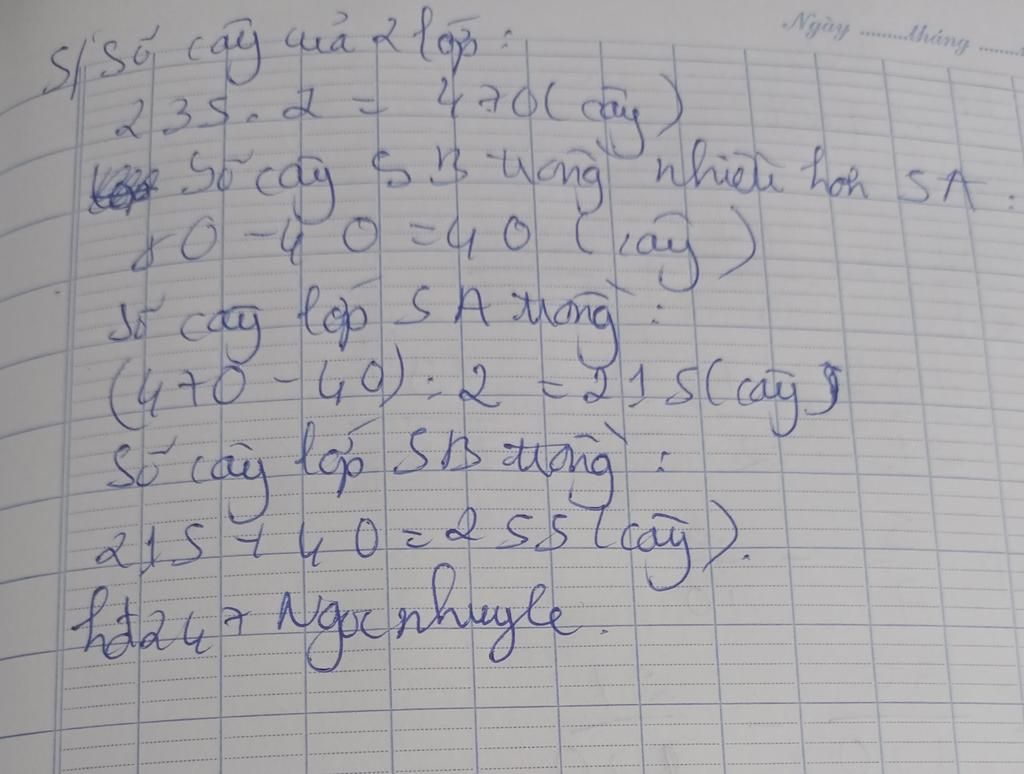 Ngày ......... tháng .......
5/ Số cây của 2 lớp :
235 . 2 = 470 ( cây )
Số cây 5B trồng nhiều hơn 5A :
80 - 40 = 40 ( cây )
Số cây lớp 5A trồng :
(470 - 40) : 2 = 215 ( cây )
Số cây lớp 5B trồng :
215 + 40 = 255 ( cây ).
hđ247 Ngocnhuyle.